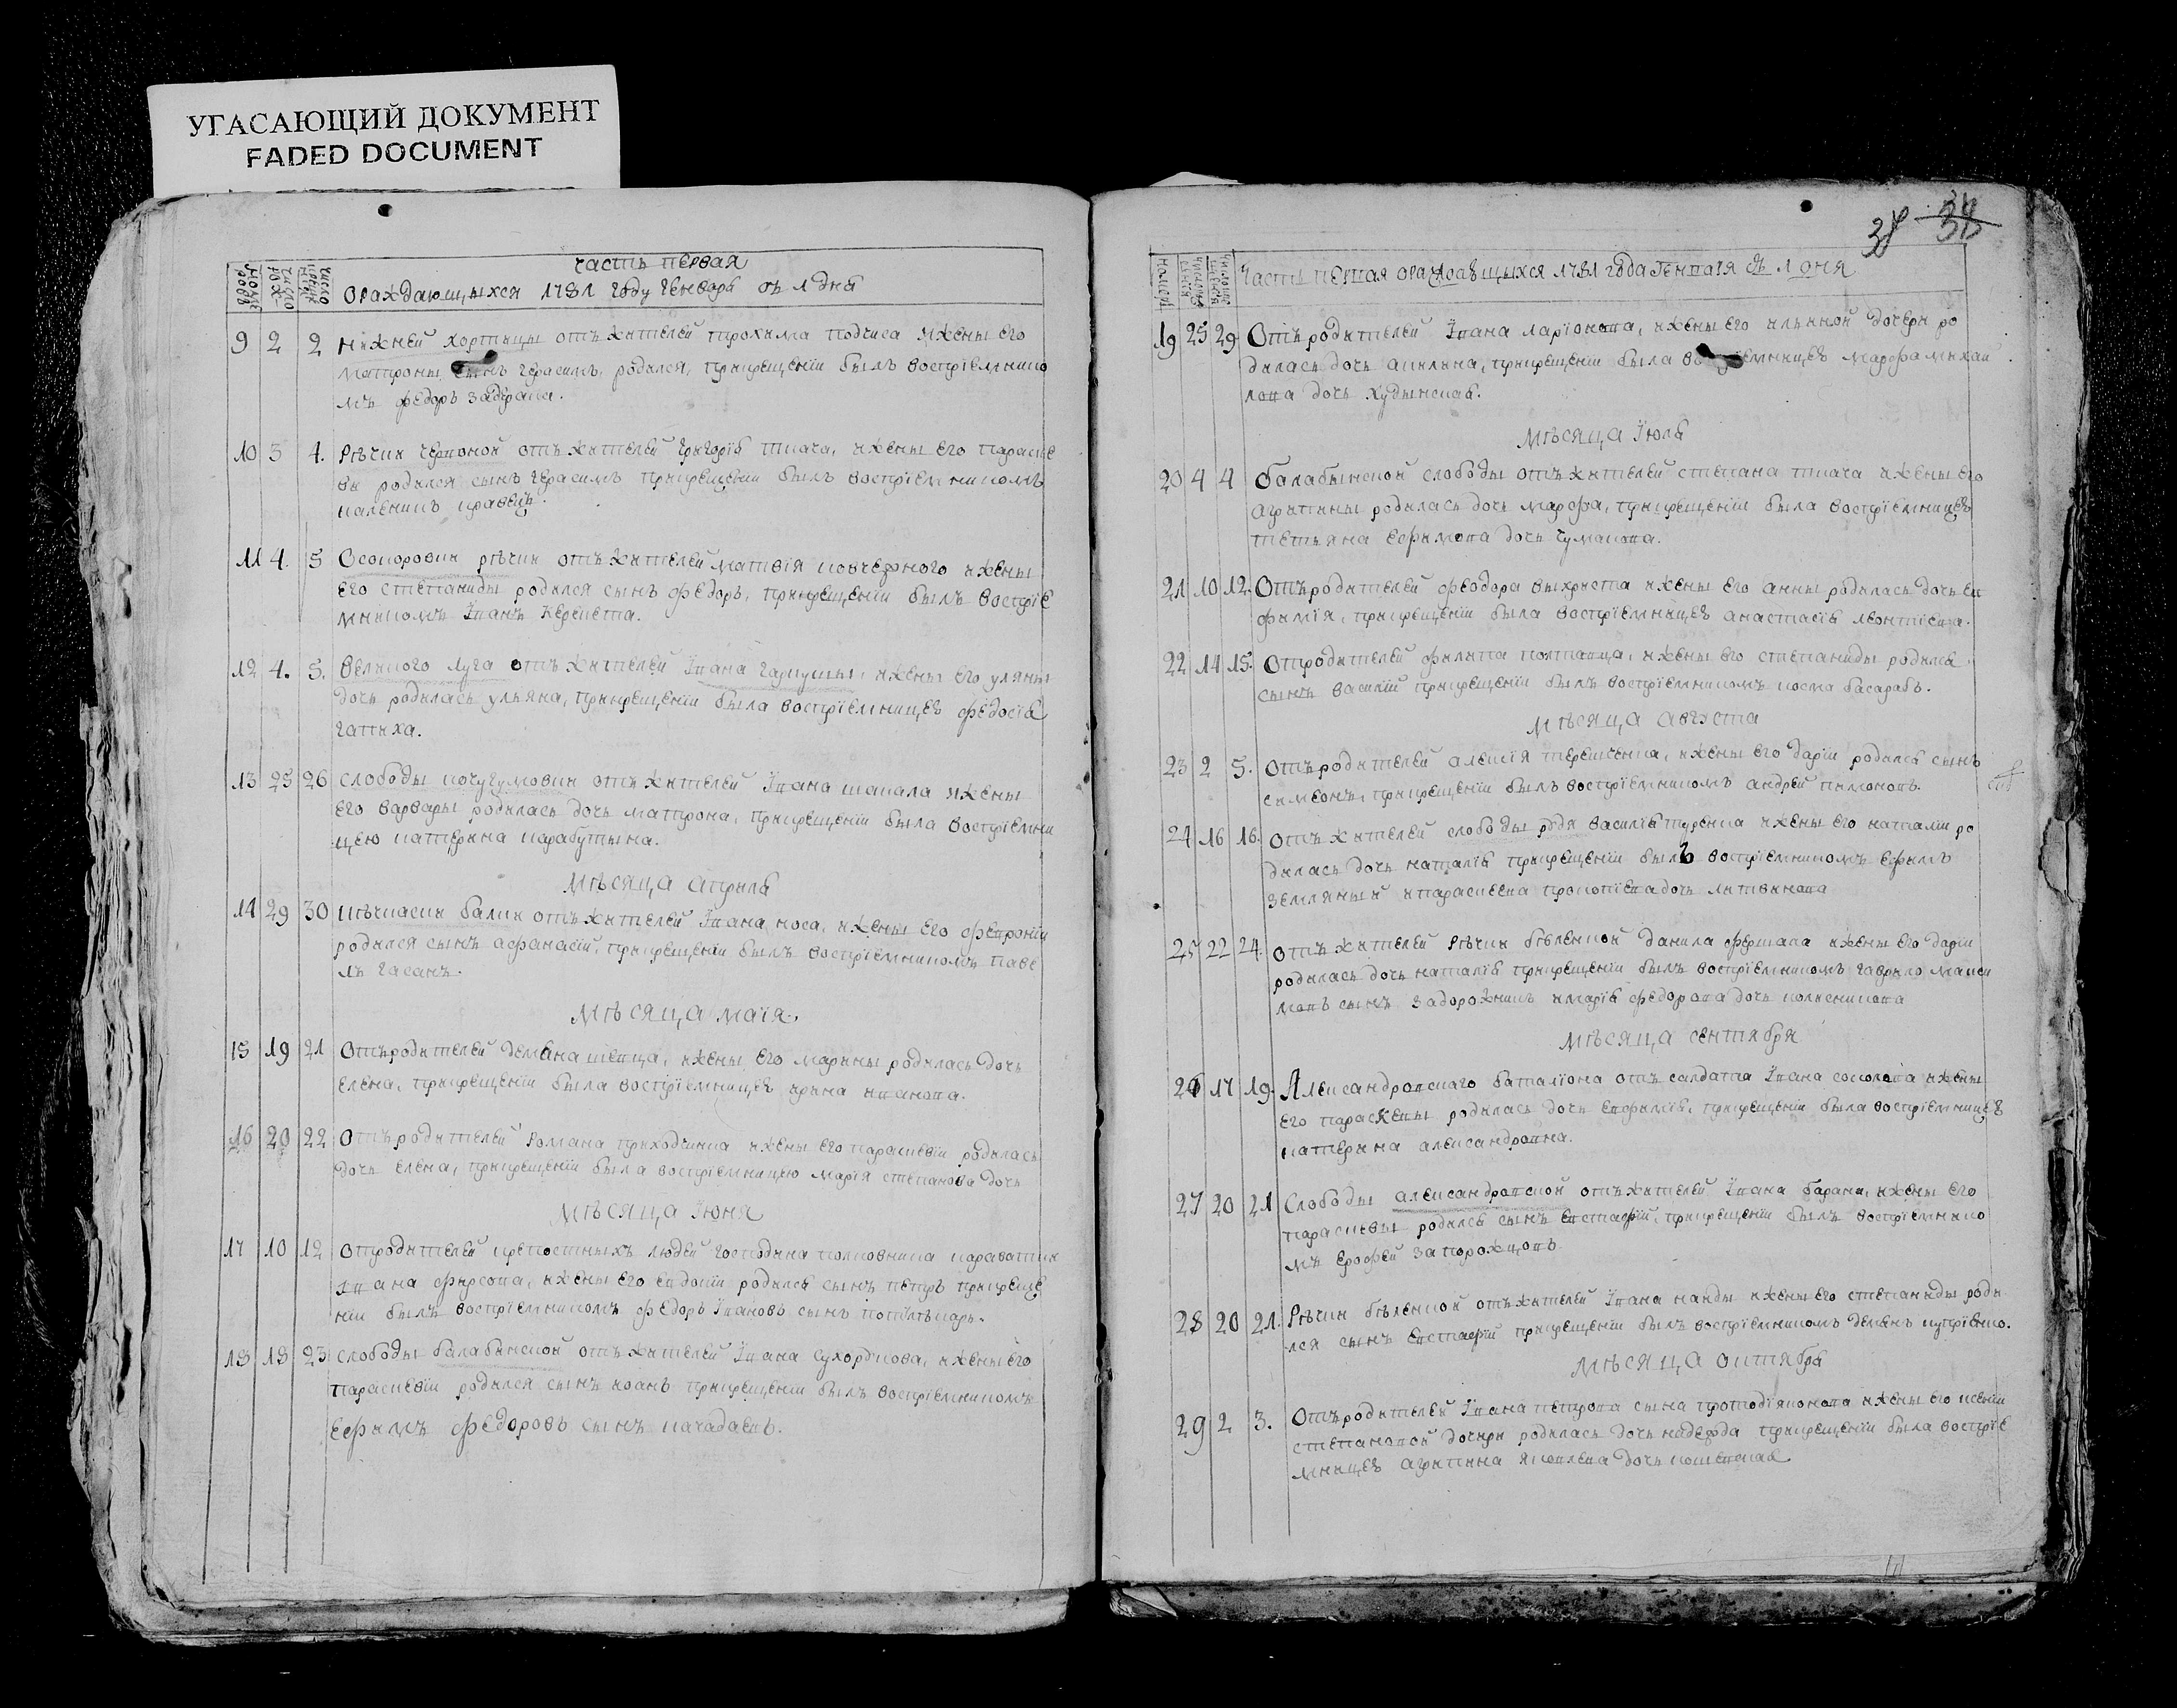 УГАСАЮЩИЙ ДОКУМЕНТ
FADED DOCUMENT
часть первая
ораждающихся 1781 году генваря съ 1 дня
9 2 2 нижней хортицы отъ жителей трохима подписа ижены его
матроны сынъ герасимъ, родился, прикрещеніи былъ воспріемнико
мъ федоръ задерака.
10 3 4. Рѣчки червоной отъ жителей григорія ткача, ижены его параске
вы родился сынъ герасимъ прикрещеніи былъ воспріемникомъ
каленикъ кравецъ.
11 4. 5 Осокоровки рѣчки отъ жителей матвія ижены
его степаниды родился сынъ федоръ, прикрещеніи былъ воспріе
мникомъ Іванъ керекета.
12 4. 5. Великого луга отъ жителей Івана гаркушы, ижены его уляны
дочь родилась ульяна, прикрещеніи была воспріемницея федосія
гапиха.
13 25 26 слободы кочугумовки отъ жителей Івана шакала ижены
его варвары родилась дочь матрона, прикрещеніи была воспріемни
цею катерина карабутына.
Мѣсяца априля
14 29 30 балки отъ жителей Івана носа, ижены его февроніи
родился сынъ афанасій, прикрещеніи былъ воспріемникомъ паве
лъ гасанъ.
Мѣсяца маія
15 19 21 Отъродителей демяна шевца, ижены его марины родилась дочь
елена, прикрещеніи была воспріемницея ирина иванова.
16 20 22 Отъ родителей романа приходченка ижены его параскевіи родилась
дочь елена, прикрещеніи была воспріемницею марія степанова дочь
Мѣсяца Іюня
17 10 12 отродителей крепостныхъ людей господина полковника караватки
Івана фирсова, ижены его евдокіи родился сынъ петръ прикреще
ніи былъ воспріемникомъ федоръ Івановъ сынъ
18 18 23 слободы балабинской отъ жителей Івана сухорукова, ижены его
параскевіи родился сынъ иоанъ прикрещеніи былъ воспріемникомъ
ефимъ федоровъ сынъ качадаевъ.
38 38
Часть первая ораждавщихся 1781 года Генваря съ 1 дня
19 25 29 Отъ родителей Івана ларіонова, ижены его ильиной дочери ро
дилась дочь акилина, прикрещеніи была воспріемницея марфа михаи
лова дочь худынская.
Мѣсяца Іюля
20 4 4 балабинской слободы отъ жителей степана ткача ижены его
агрипины родилась дочь марфа, прикрещеніи была воспріемницея
тетьяна ефимова дочь чумакова.
21 10 12. Отъродителей феодора выхриста ижены его анны родилась дочь ев
фимія, прикрещеніи была воспріемницея анастасія леонтіева.
22 14 15. отродителей филипа полтавца, ижены его степаниды родился
сынъ василій прикрещеніи былъ воспріемникомъ косма басарабъ.
мѣсяца августа
23 2 5. отъродителей алексія терещенка, ижены его даріи родился сынъ
симеонъ, прикрещеніи былъ воспріемникомъ андрей пимоновъ.
24 16 16. отъ жителей слободы василія туренка ижены его наталіи ро
дилась дочь наталія прикрещеніи былъ воспріемникомъ ефимъ
земляный ипараскева прокопіева дочь литвинова
25 22 24. отъ жителей рѣчки бѣленкой данила фершала ижены его даріи
родилась дочь наталія прикрещеніи былъ воспріемникомъ гаврило макси
мовъ сынъ задорожникъ имарія федорова дочь колесникова
мѣсяца сентября
26 17 19. Александровскаго баталіона отъ салдата Івана соколова ижены
его параскевы родилась дочь Евфимія, прикрещеніи была воспріемницея
катерина александровна.
27 20 21 Слободы александровской отъ жителей Івана барана, ижены его
параскевы родился сынъ Евстафій, прикрещеніи былъ воспріемнико
мъ ерофей запорожцовъ.
28 20 21. Рѣчки бѣленкой отъ жителей Івана нанды ижены его степаниды роди
лся сынъ Евстафій прикрещеніи былъ воспріемникомъ демянъ
мѣсяца октября
29 2 3. Отъродителей Івана петрова сына протодіяконова ижены его ксеніи
степановой дочери родилась дочь надежда прикрещеніи была воспріе
мницея агрипина яковлева дочь кошевская